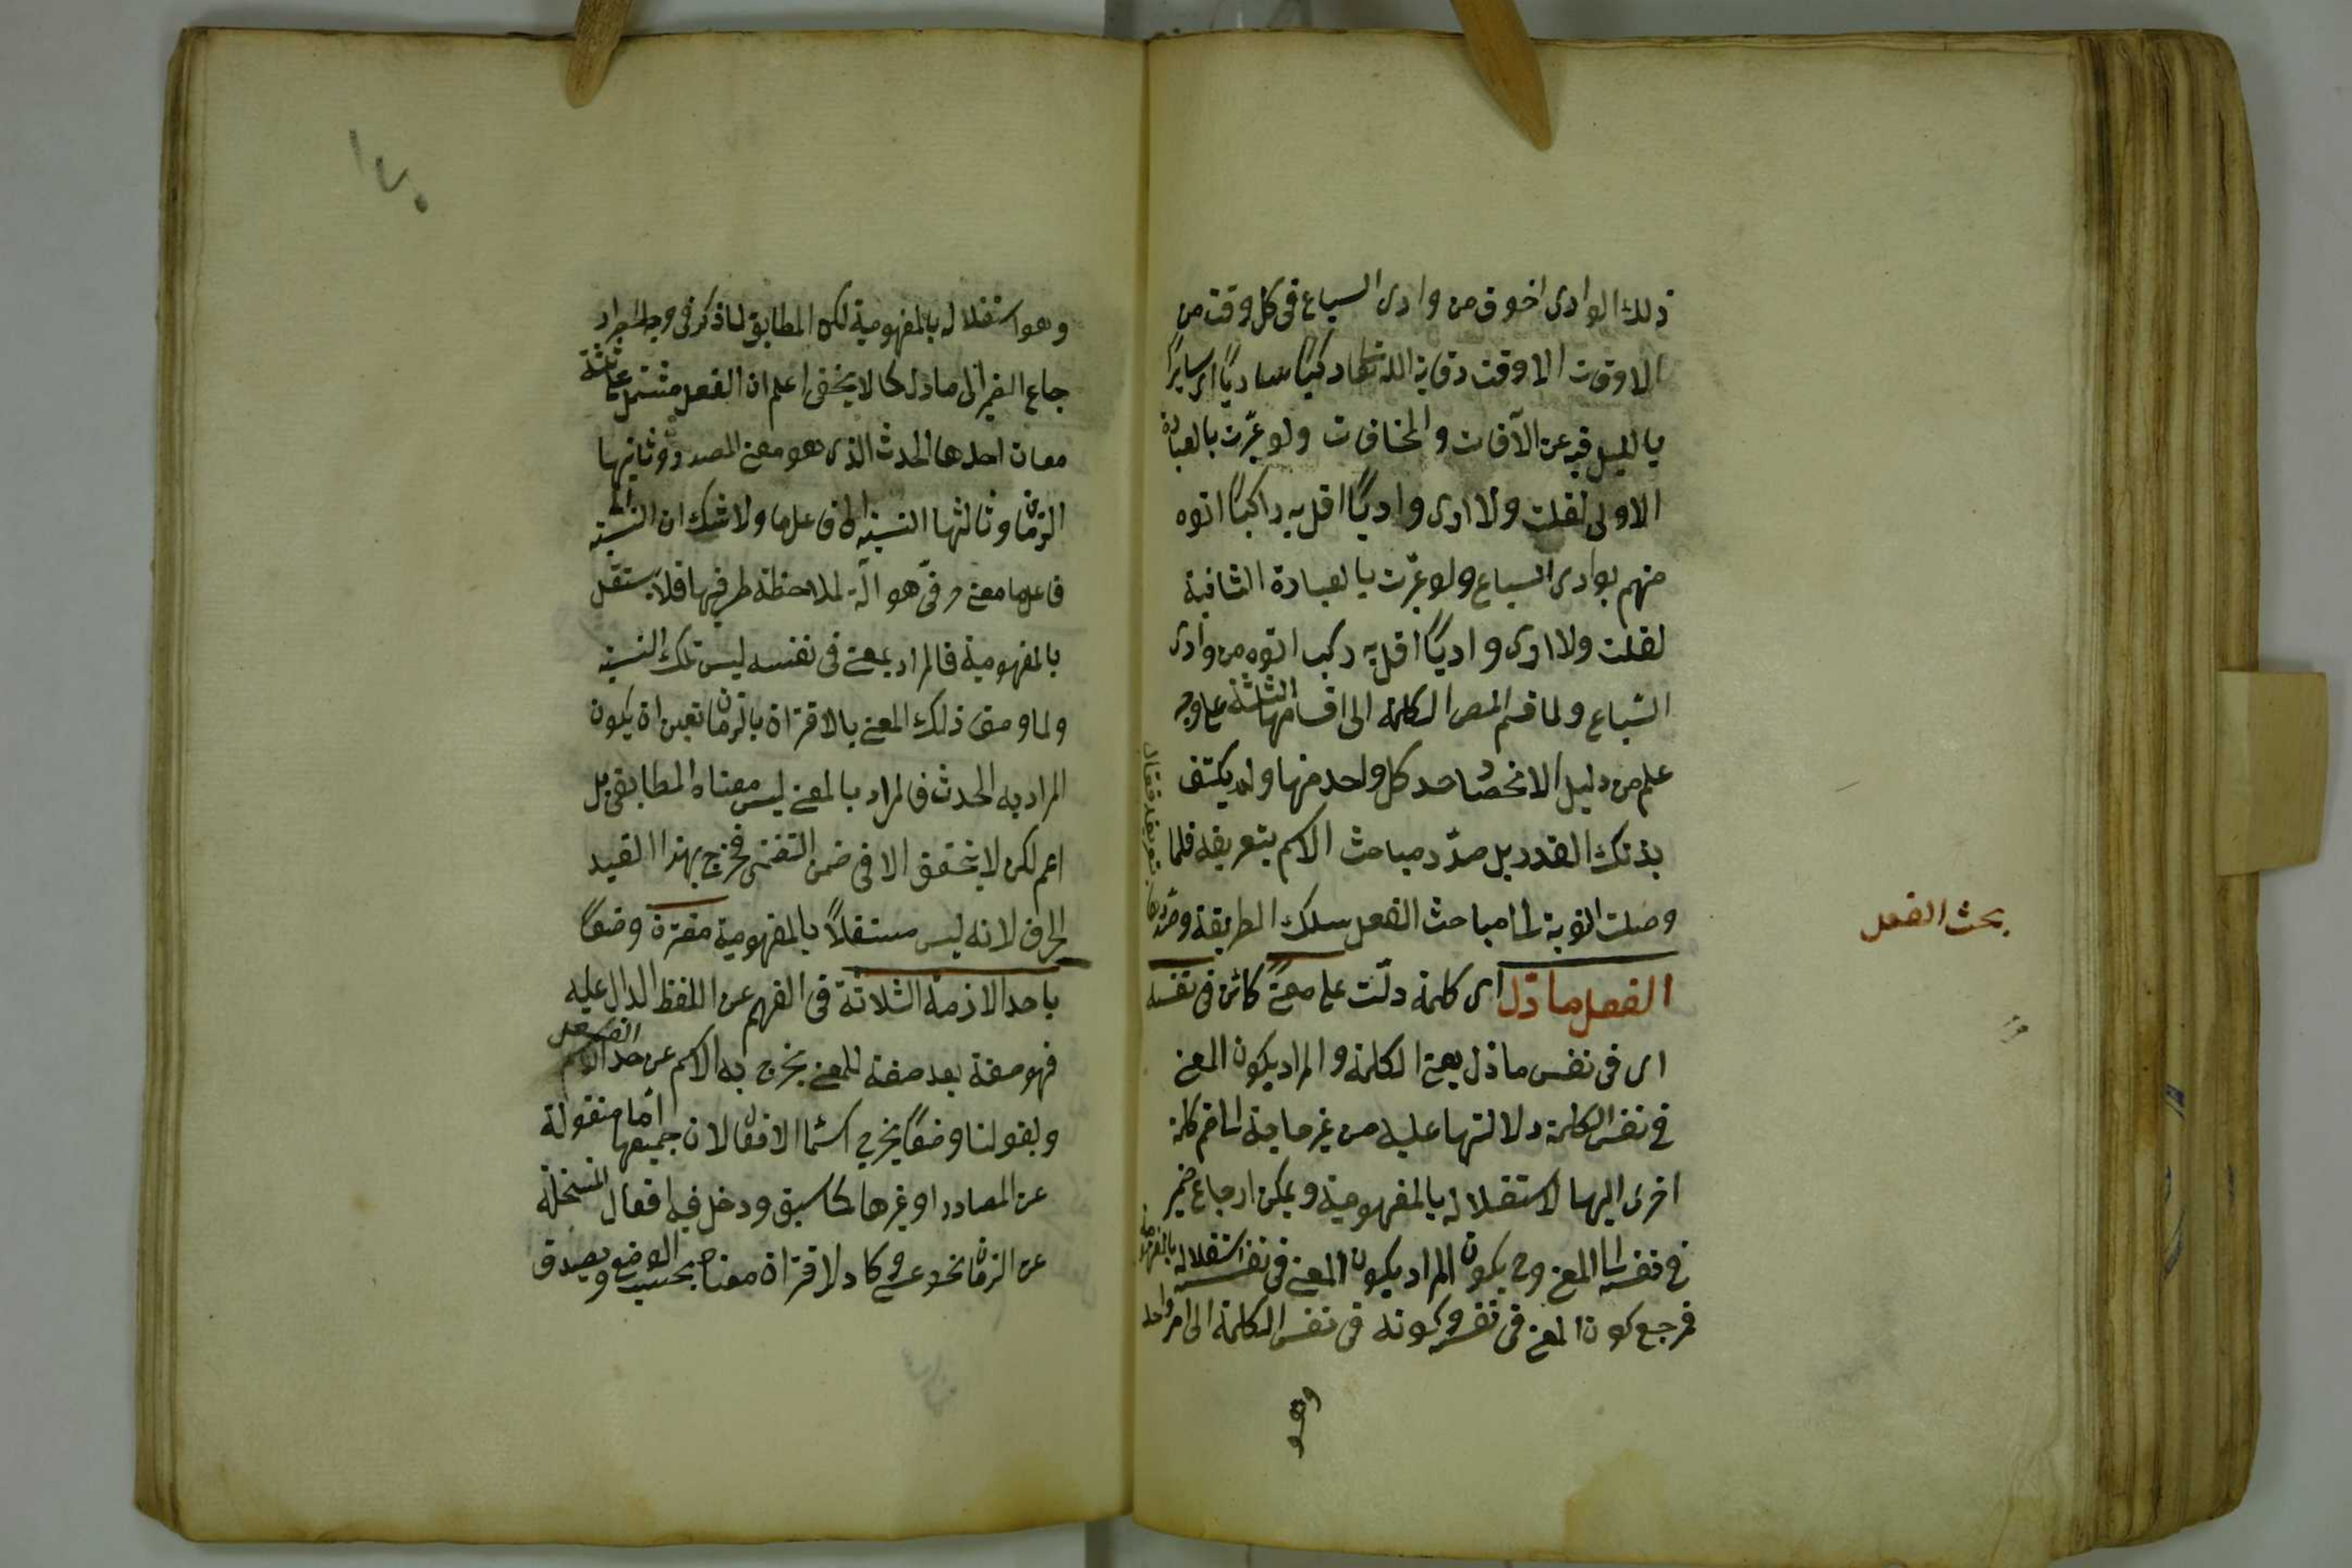 ذلك الوادى اخوف من وادى السباع فى كل وقت من
الاوقات الا وقت وقاية الله تعالى ركبا ساريا اى سايرًا
بالليل فيه عن الآفات والمخافات ولو عبّرت بالعبارة
الاولى لقلت ولا ارى واديًا اقل به راكبًا اتوه
منهم بوادى السباع ولو عبّرت بالعبارة الثانية
لقلت ولا ارى واديًا اقل به ركب اتوه من وادى
السّباع ولما قسم المص الكلمة الى اقسامها الثلثة على وجه
علم من دليل الانحصار حد كل واحد منها ولم يكتف
بذلك القدر بل صدّر مباحث الاسم بتعريفه فلما
وصلت النوبة الى مباحث الفعل سلك الطريقة وصدّرها بتعريفه فقال
بحث الفعل
الفعل ما دل اى كلمة دلّت على معنىً كائن فى نفسه
اى فى نفس ما دل يعنى الكلمة والمراد بكون المعنى
فى نفس الكلمة دلالتها عليه من غير حاجة الى ضم كلمة
اخرى اليها لاستقلاله بالمفهومية ويمكن ارجاع ضمير
فى نفسه الى المعنى وح يكون المراد بكون المعنى فى نفسه استقلاله بالمفهومية
فمرجع كون المعنى فى نفسه وكونه فى نفس الكلمة الى امر واحد
وهو
١٧٠
وهو استقلاله بالمفهومية لكن المطابق لما ذكر فى وجه الحصر
ارجاع الضمير الى ما دل كما لا يخفى اعلم ان الفعل مشتمل على ثلثة
معان احدها الحدث الذى هو معنى المصدر وثانيها
الزمان وثالثها النسبة الى فاعل ما ولا شك ان النسبة الى
فاعل ما معنى حرفىّ هو آلة لملاحظة طرفيها فلا يستقل
بالمفهومية فالمراد بمعنى فى نفسه ليس تلك النسبة
ولما وصف ذلك المعنى بالاقتران بالزمان تعين ان يكون
المراد به الحدث فالمراد بالمعنى ليس معناه المطابقى بل
اعم لكن لا يتحقق الا فى ضمن التضمنى فخرج بهذا القيد
الحرف لانه ليس مستقلاً بالمفهومية مقترن وضعًا
باحد الازمنة الثلاثة فى الفهم عن اللفظ الدال عليه
فهو صفة بعد صفة للمعنى يخرج به الاسم عن حد الفعل
وبقولنا وضعًا يخرج اسماء الافعال لان جميعها اما منقولة
عن المصادر او غيرها كما سبق ودخل فيه افعال المنسلخة
عن الزمان نحو عسى وكاد لاقتران معناه بحسب الوضع ويصدق